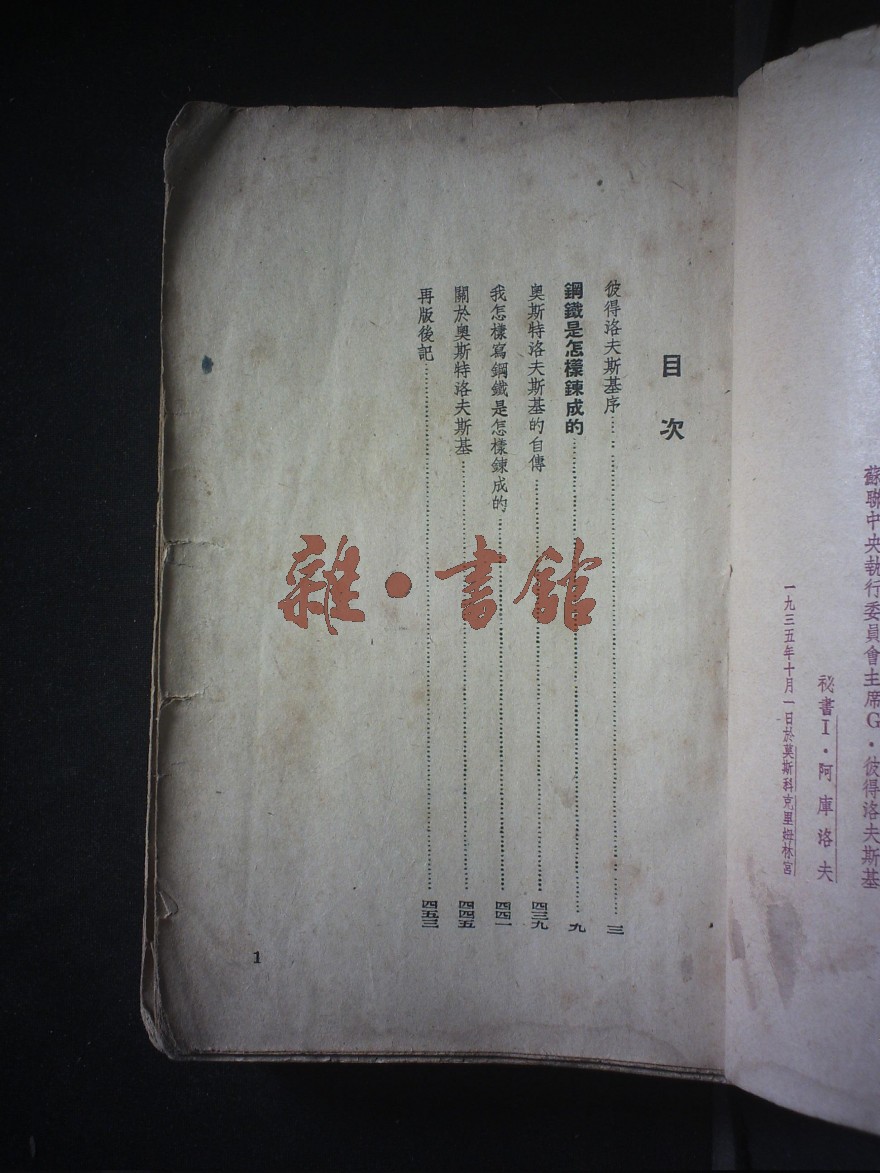 蘇聯中央執行委員會主席G·彼得洛夫斯基
秘書I·阿庫洛夫
一九三五年十月一日於莫斯科克里姆林宮
目次
彼得洛夫斯基序……三
鋼鐵是怎樣鍊成的……九
奧斯特洛夫斯基的自傳……四三九
我怎樣寫鋼鐵是怎樣鍊成的……四四一
關於奧斯特洛夫斯基……四四五
再版後記……四五三
1
雜·書館